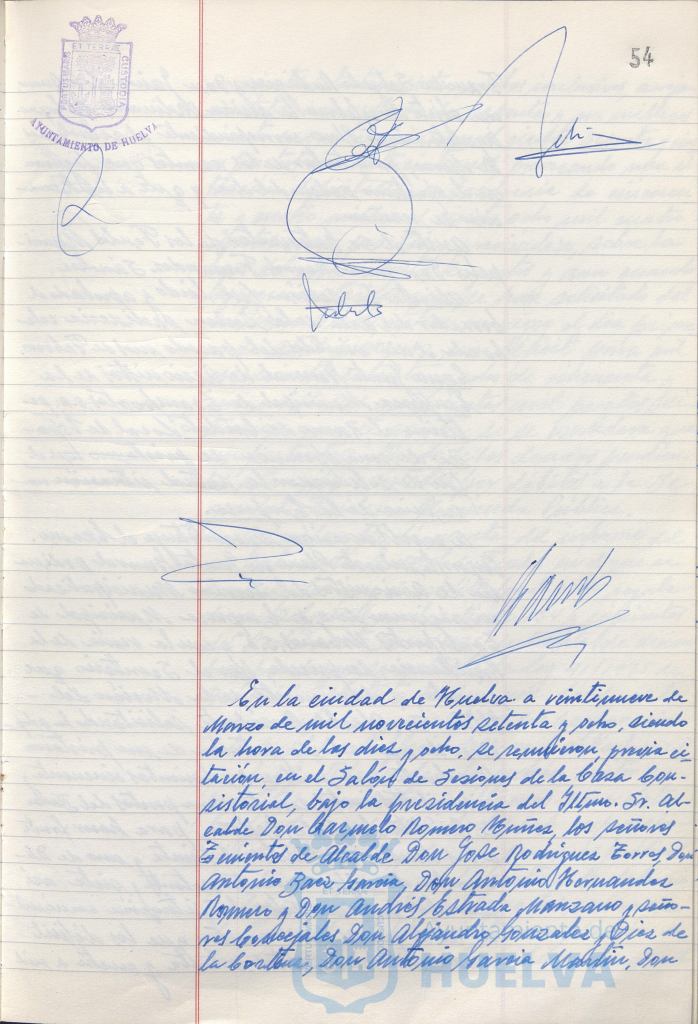 54
ET TERRÆ
CUSTODIA
AYUNTAMIENTO DE HUELVA
En la ciudad de Huelva a veintinueve de
Marzo de mil novecientos setenta y ocho, siendo
la hora de las diez y ocho, se reunieron, previa ci-
tación, en el Salón de Sesiones de la Casa Con-
sistorial, bajo la presidencia del Iltmo. Sr. Al-
calde Don Carmelo Romero Núñez, los señores
Tenientes de Alcalde Don José Rodríguez Torres, Don
Antonio Baez Garcia, Don Antonio Hernandez
Romero y Don Andrés Estrada Manzano y seño-
res Concejales Don Alejandro González y Diez de
la Cortina, Don Antonio Garcia Martín, Don
HUELVA